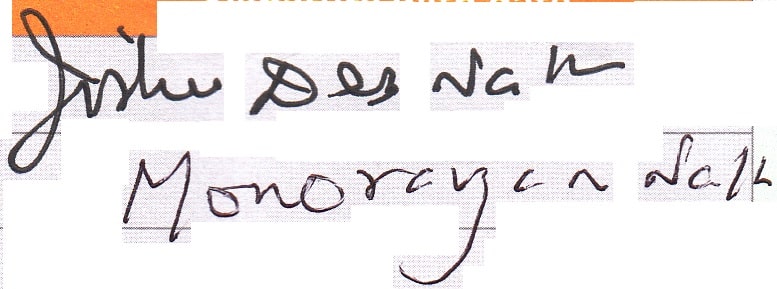 Jishu Deb Nath
Monoranjan Nath